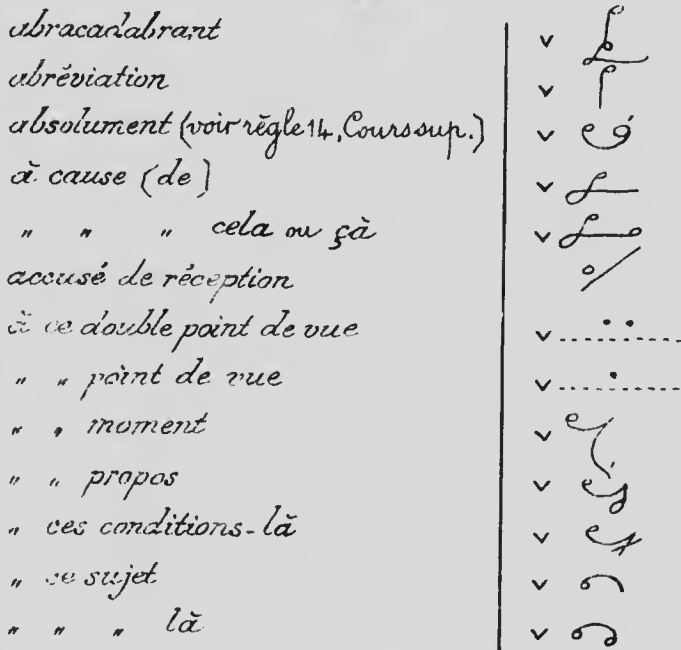 abracadabrant v
abréviation v
absolument (voir règle 14, Cours sup.) v
à cause (de) v
" " " cela ou çà v
accusé de réception
à ce double point de vue v
" " point de vue v
" " moment v
" " propos v
" ces conditions-là v
" ce sujet v
" " " là v